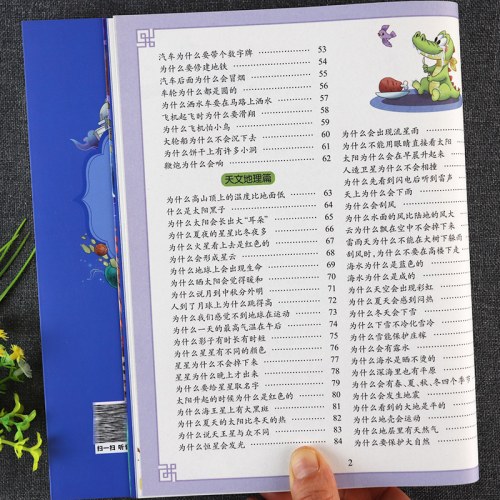 汽车为什么要带个数字牌 53
为什么要修建地铁 54
汽车后面为什么会冒烟 55
车轮为什么都是圆的 56
为什么洒水车要在马路上洒水 57
飞机起飞时为什么要滑翔 58
为什么飞机怕小鸟 59
大轮船为什么不会沉下去 60
为什么饼干上有许多小洞 61
鞭炮为什么会响 62
天文地理篇
为什么高山顶上的温度比地面低 63
什么是太阳黑子 64
为什么太阳会长出大“耳朵” 65
为什么夏夜的星星比冬夜多 66
为什么火星看上去是红色的 67
为什么会形成星云 68
为什么地球上会出现生命 69
为什么晒太阳会觉得暖和 70
为什么说月到中秋分外明 71
人到了月球上为什么跳得高 72
为什么我们感觉不到地球在运动 73
为什么一天的最高气温在午后 74
为什么影子有时长有时短 75
为什么星星有不同的颜色 76
星星为什么不会掉下来 77
星星为什么晚上才出来 78
为什么要给星星取名字 79
太阳升起的时候为什么是红色的 80
为什么海王星上有大黑斑 81
为什么夏天的太阳比冬天的热 82
为什么说天王星与众不同 83
为什么恒星会发光 84
为什么会出现流星雨
为什么不能用眼睛直接看太阳
太阳为什么会在早晨升起来
人造卫星为什么不会相撞
为什么先看到闪电后听到雷声
天上为什么会下雨
为什么会刮风
为什么水面的风比陆地的风大
云为什么飘在空中不会掉下来
雷雨天为什么不能在大树下躲雨
刮风时,为什么不要在高楼下走
海水为什么是蓝色的
海水为什么是咸的
为什么天空会出现彩虹
为什么夏天会感到闷热
为什么冬天会下雪
为什么下雪不冷化雪冷
为什么雪能保护庄稼
为什么会有露水
为什么海水是晒不烫的
为什么深海里也有平原
为什么会有春、夏、秋、冬四个季节
为什么会发生地震
为什么看到的大地是平的
为什么地壳会运动
为什么地层里有天然气
为什么要保护大自然
2
扫一扫 听